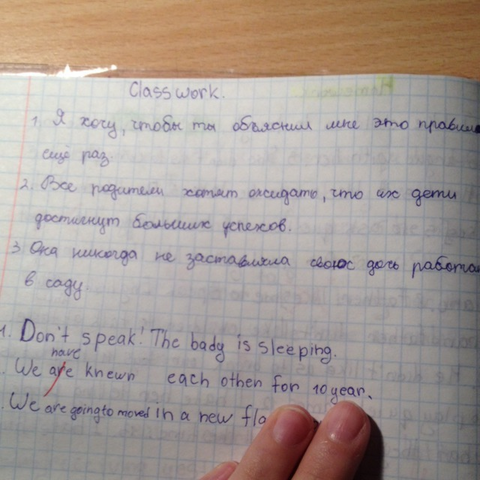 Classwork.
1. Я хочу, чтобы ты объяснил мне это правило
ещё раз.
2. Все родители хотят ожидать, что их дети
достигнут больших успехов.
3. Она никогда не заставляла свою дочь работа
в саду.
1. Don't speak! The bady is sleeping.
have
. We are knewn each othen for 10 year.
. We are going to moved in a new fla